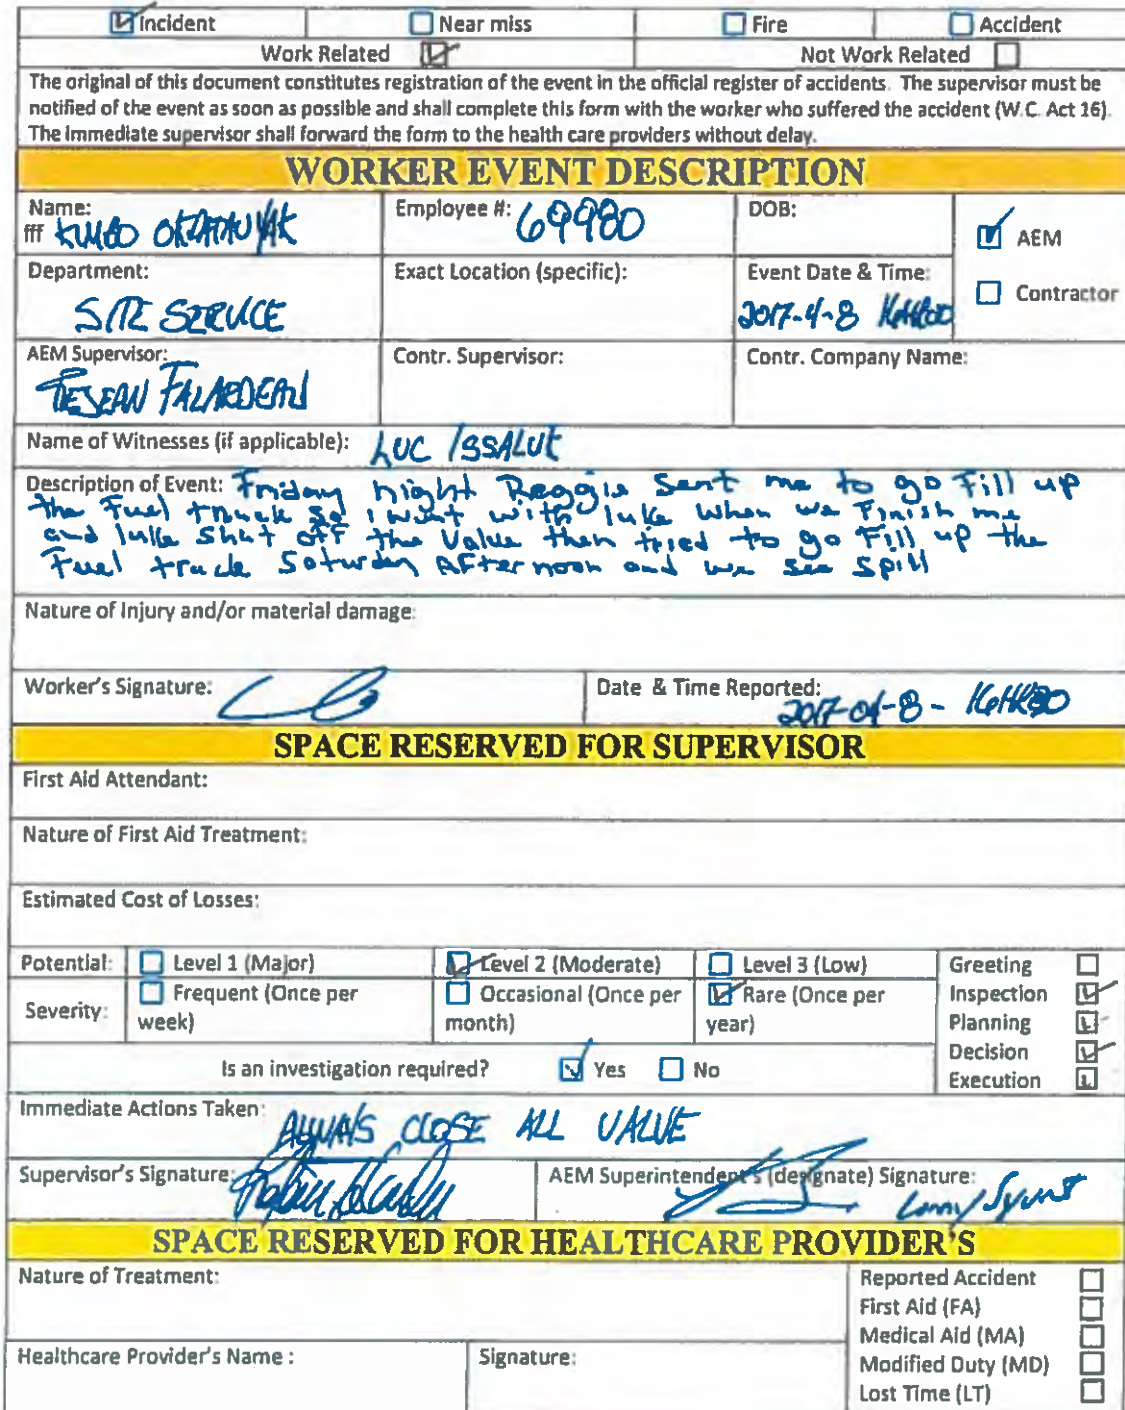 Incident Near miss Fire Accident
Work Related Not Work Related
The original of this document constitutes registration of the event in the official register of accidents. The supervisor must be
notified of the event as soon as possible and shall complete this form with the worker who suffered the accident (W.C. Act 16).
The immediate supervisor shall forward the form to the health care providers without delay.
WORKER EVENT DESCRIPTION
Name: Employee #: 69980 DOB:
fff AEM
Department: Exact Location (specific): Event Date & Time: Contractor
SITE SERVICE 2017-4-8
AEM Supervisor: Contr. Supervisor: Contr. Company Name:
FALARDEAU
Name of Witnesses (if applicable): LUC ISSALUK
Description of Event: Friday night Reggie Sent me to go Fill up
the Fuel truck so i went with luke when we Finish me
and luke shut off the Value then tried to go Fill up the
Fuel truck Saturday AFternoon and we see spill
Nature of Injury and/or material damage:
Worker's Signature: Date & Time Reported:
2017-04-8 -
SPACE RESERVED FOR SUPERVISOR
First Aid Attendant:
Nature of First Aid Treatment:
Estimated Cost of Losses:
Potential: Level 1 (Major) Level 2 (Moderate) Level 3 (Low) Greeting
Severity: Frequent (Once per Occasional (Once per Rare (Once per Inspection
week) month) year) Planning
Is an investigation required? Yes No Decision
Execution
Immediate Actions Taken: ALWAYS CLOSE ALL VALVE
Supervisor's Signature: AEM Superintendent's (designate) Signature:
SPACE RESERVED FOR HEALTHCARE PROVIDER'S
Nature of Treatment: Reported Accident
First Aid (FA)
Medical Aid (MA)
Healthcare Provider's Name : Signature: Modified Duty (MD)
Lost Time (LT)